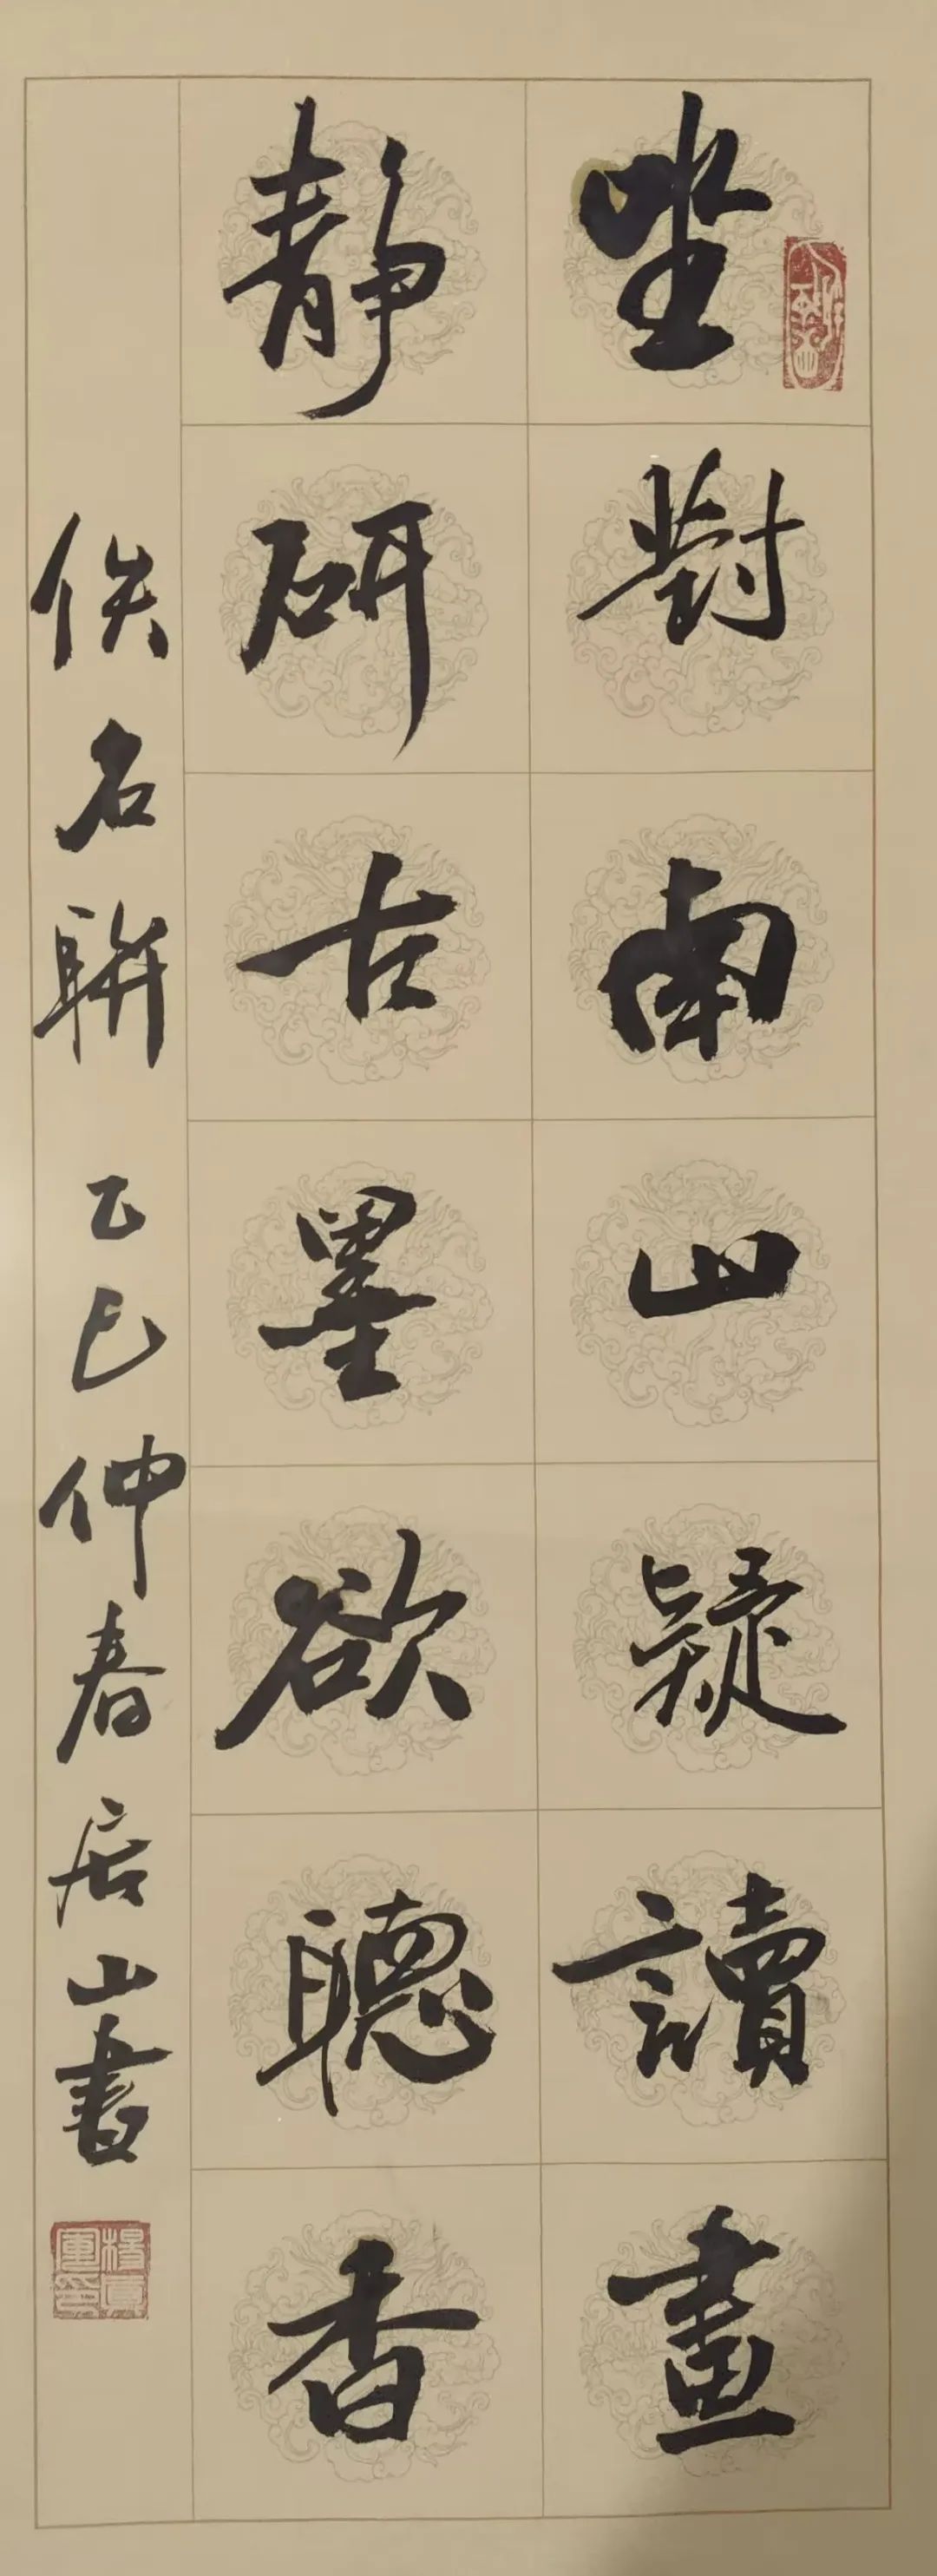 坐對南山疑讀畫
靜研古墨欲聽香
佚名聯 乙巳仲春居山書